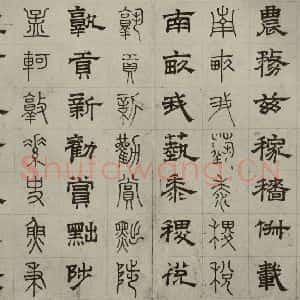 農務兹稼穡俶載
南畝我藝黍稷稅
南畝我藝黍稷稅
孰貢新勸賞黜陟
孰貢新勸賞黜陟
孟軻敦素史魚秉
Shufawang.CN